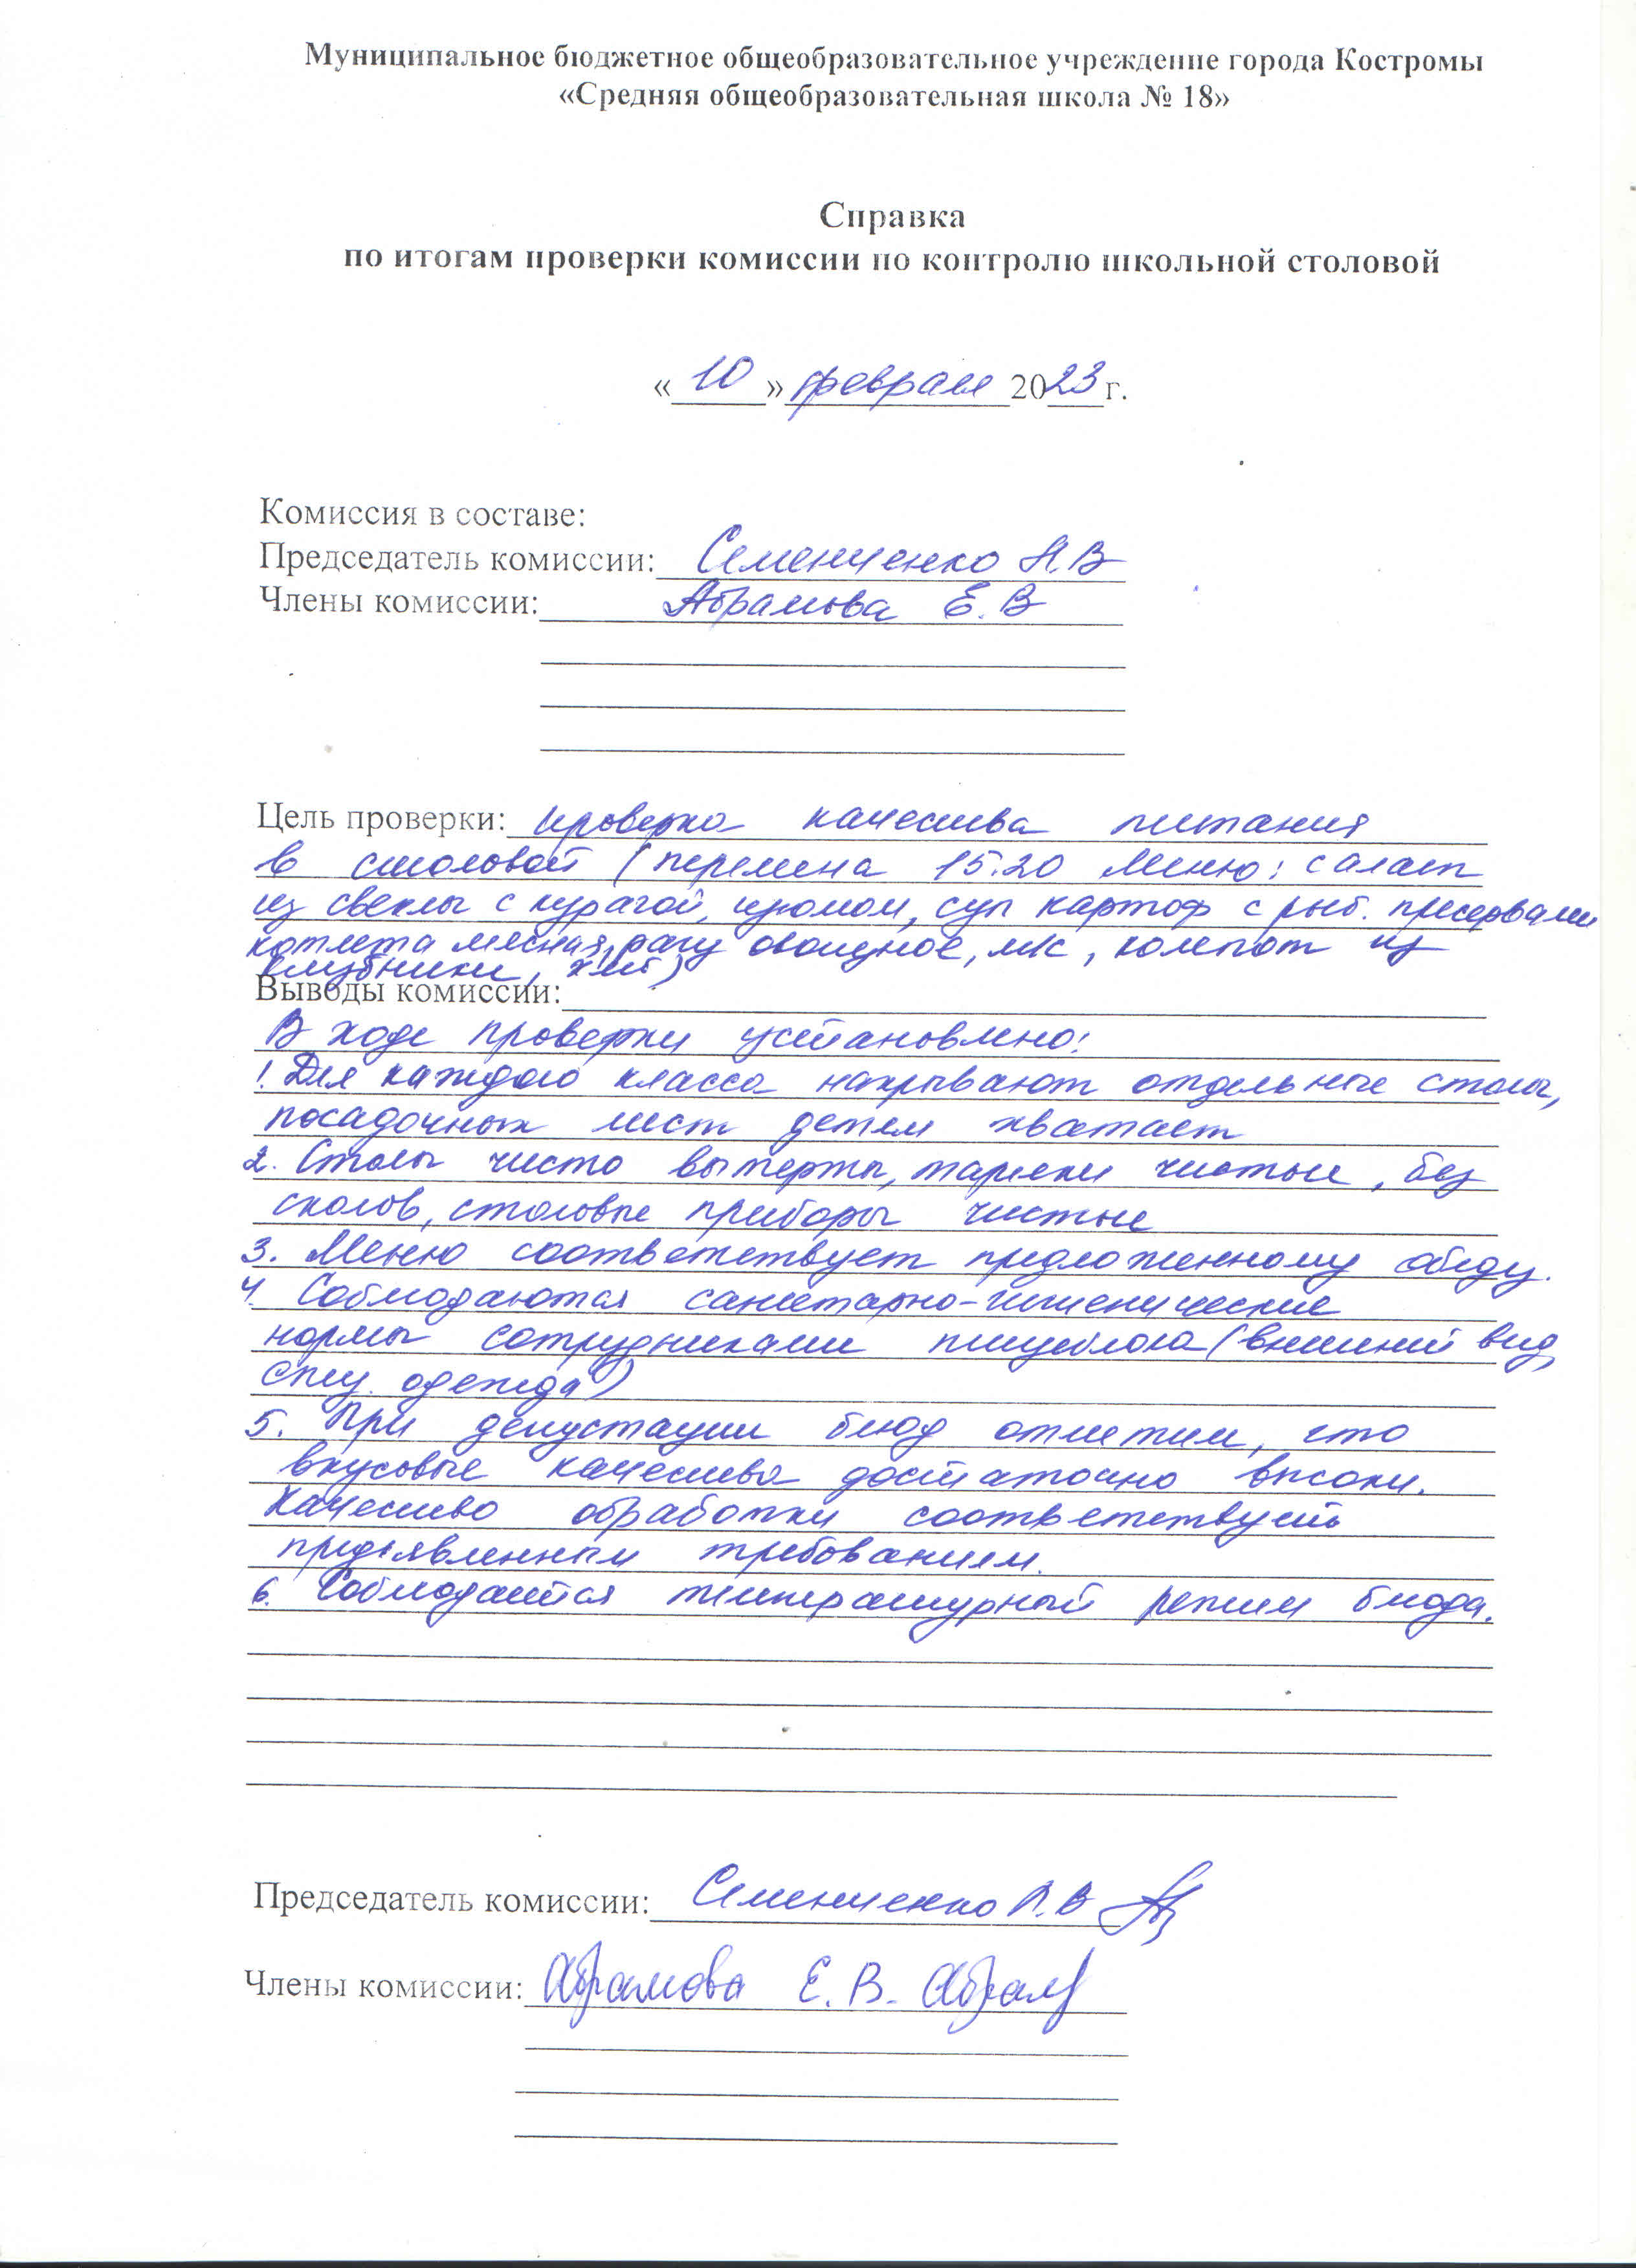 Муниципальное бюджетное общеобразовательное учреждение города Костромы
«Средняя общеобразовательная школа № 18»
Справка
по итогам проверки комиссии по контролю школьной столовой
«10» февраля 2023 г.
Комиссия в составе:
Председатель комиссии: Семениченко Н.В
Члены комиссии: Абрамова Е.В
Цель проверки: проверка качества питания
в столовой (перемена 15:20 Меню: салат
из свеклы с курагой, изюмом, суп картоф с рыб. пресервами
котлета мясная, рагу овощное, м/к, компот из
клубники, хлеб)
Выводы комиссии:
В ходе проверки установлено:
1. Для каждого класса накрывают отдельные столы,
посадочных мест детям хватает
2. Столы чисто вытерты, тарелки чистые, без
сколов, столовые приборы чистые
3. Меню соответствует предложенному обеду.
4. Соблюдаются санитарно-гигиенические
нормы сотрудниками пищеблока (внешний вид,
спец. одежда)
5. При дегустации блюд отметили, что
вкусовые качества достаточно высоки.
Качество обработки соответствует
предъявленным требованиям.
6. Соблюдается температурный режим блюда.
Председатель комиссии: Семениченко Н.В
Члены комиссии: Абрамова Е.В. Абрам